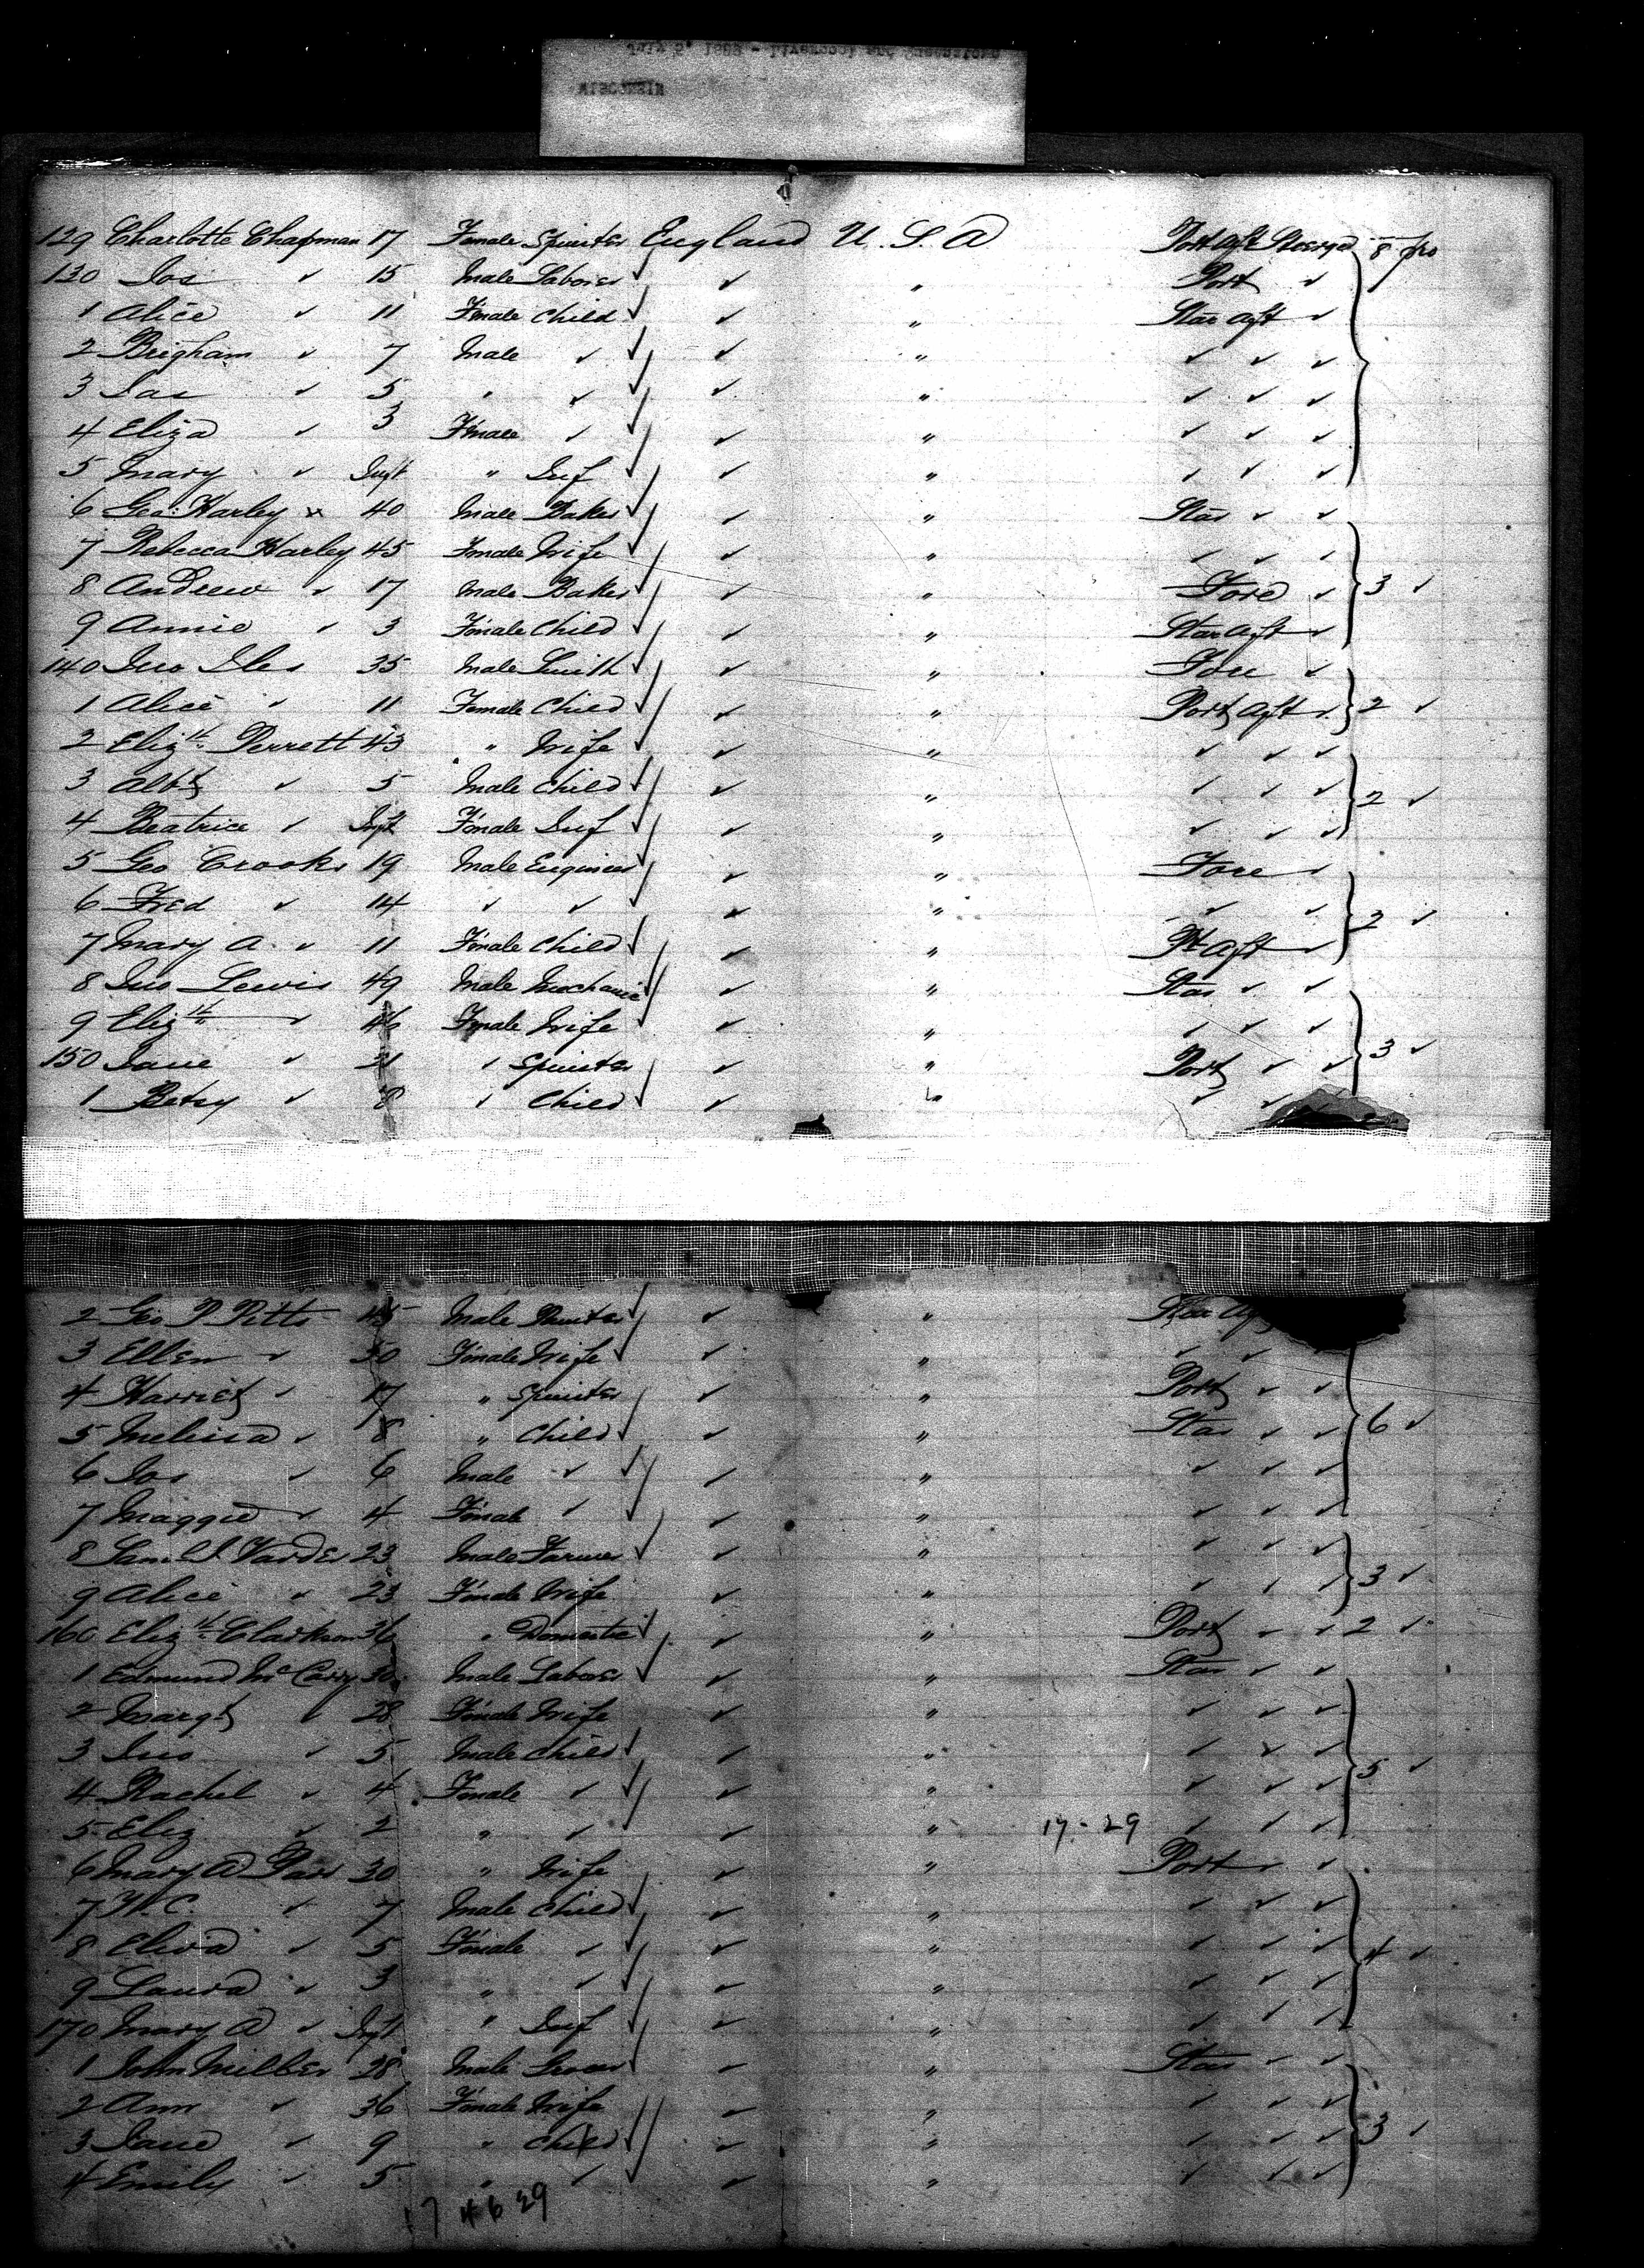 July 5" 1883 - Liverpool and Queenstown
WISCONSIN
129 Charlotte Chapman 17 Female Spinster England U.S.A Port aft Steerge 8 pro
130 Jos ✓ 15 Male Laborer ✓ ✓ " Port ✓
1 Alice ✓ 11 Female Child ✓ ✓ " Star aft ✓
2 Brigham ✓ 7 Male ✓ ✓ ✓ " ✓ ✓ ✓
3 Jas ✓ 5 " ✓ ✓ ✓ " ✓ ✓ ✓
4 Eliza ✓ 3 Female ✓ ✓ ✓ " ✓ ✓ ✓
5 Mary ✓ Inft " Inf ✓ ✓ " ✓ ✓ ✓
6 Geo Harley x 40 Male Baker ✓ ✓ " Star ✓ ✓
7 Rebecca Harley 45 Female Wife ✓ ✓ " ✓ ✓ ✓
8 Andrew ✓ 17 Male Baker ✓ ✓ " Fore ✓ 3 ✓
9 Annie ✓ 3 Female Child ✓ ✓ " Star aft ✓
140 Jno Iles 35 Male Smith ✓ ✓ " Fore ✓
1 Alice ✓ 11 Female Child ✓ ✓ " Port aft ✓ 2 ✓
2 Elizth Perrett 43 " Wife ✓ ✓ " ✓ ✓ ✓
3 Albt ✓ 5 Male Child ✓ ✓ " ✓ ✓ ✓ 2 ✓
4 Beatrice ✓ Inft Female Inf ✓ ✓ " ✓ ✓ ✓
5 Geo Crooks 19 Male Engineer ✓ ✓ " Fore ✓
6 Fred ✓ 14 ✓ ✓ ✓ " ✓ ✓ 2 ✓
7 Mary A. ✓ 11 Female Child ✓ ✓ " Pt aft ✓
8 Jno Lewis 49 Male Mechanic ✓ ✓ " Star ✓ ✓
9 Elizth ✓ 46 Female Wife ✓ ✓ " ✓ ✓ ✓
150 Jane ✓ 21 ✓ Spinster ✓ " Port ✓ ✓ 3 ✓
1 Betsy ✓ 8 ✓ Child ✓ ✓ " ✓ ✓
2 Geo P Pitts 45 Male ✓ ✓ " Star aft
3 Ellen ✓ 50 Female Wife ✓ ✓ " ✓ ✓
4 Harriet ✓ 17 " Spinster ✓ ✓ " Port ✓ ✓
5 Melissa ✓ 8 " Child ✓ ✓ " Star ✓ ✓ 6 ✓
6 Jos ✓ 6 Male ✓ ✓ ✓ " ✓ ✓ ✓
7 Maggie ✓ 4 Female ✓ ✓ " ✓ ✓ ✓
8 Saml J. 23 Male Farmer ✓ ✓ " ✓ ✓ ✓
9 Alice " 23 Female Wife ✓ " ✓ ✓ ✓ 3 ✓
160 Elizth Clarkson 36 " Domestic ✓ ✓ " Port ✓ ✓ 2 ✓
1 Edmund Mc 30 Male Laborer ✓ ✓ " Star ✓ ✓
2 Margt ✓ 28 Female Wife ✓ " ✓ ✓ ✓
3 Jno ✓ 5 Male Child ✓ ✓ " ✓ ✓ ✓
4 Rachel ✓ 4 Female ✓ ✓ ✓ " ✓ ✓ ✓ 5 ✓
5 Eliz ✓ 2 " ✓ ✓ " 17-29 ✓ ✓ ✓
6 Mary A Parr 30 " Wife ✓ " Port ✓ ✓
7 W. C. ✓ 7 Male Child ✓ ✓ " ✓ ✓ ✓
8 ✓ 5 Female ✓ ✓ ✓ " ✓ ✓ ✓ 4 ✓
9 Laura ✓ 3 " ✓ ✓ ✓ " ✓ ✓ ✓
170 Mary A ✓ Inft " Inf ✓ ✓ " ✓ ✓ ✓
1 John Miller 28 Male ✓ ✓ " Star ✓ ✓
2 Ann ✓ 36 Female Wife ✓ " ✓ ✓ ✓
3 Jane ✓ 9 " Child ✓ ✓ " ✓ ✓ ✓ 3 ✓
4 Emily ✓ 5 " ✓ ✓ ✓ " ✓ ✓ ✓
17 4 6 29